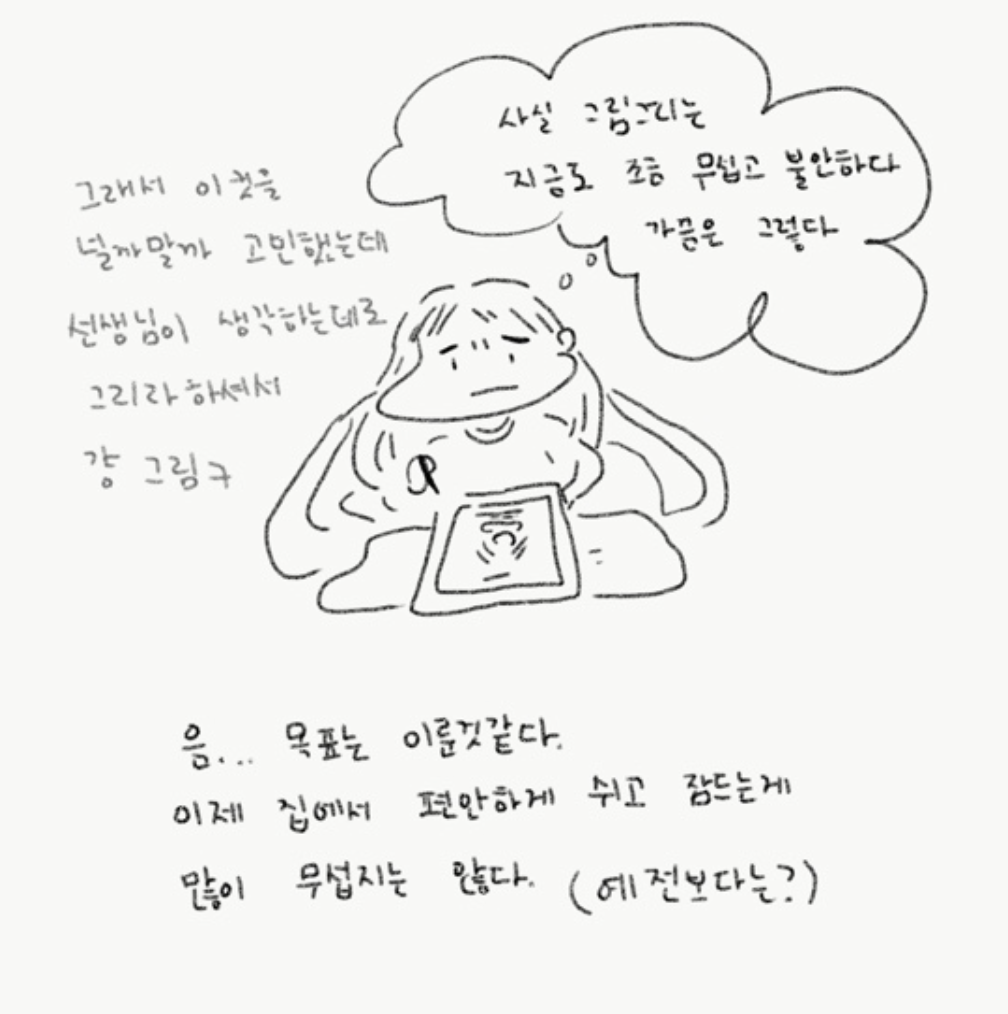 사실 그림그리는
지금도 조금 무섭고 불안하다
가끔은 그렇다
그래서 이 컷을
넣을까말까 고민했는데
선생님이 생각하는데로
그리라하셔서
걍 그림ㅋ
음... 목표는 이룬것같다.
이제 집에서 편안하게 쉬고 잠드는게
많이 무섭지는 않다. (예전보다는?)